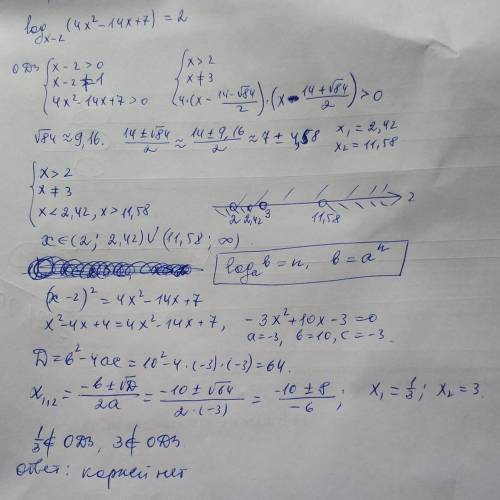 log_{x-2} (4x²-14x+7) = 2
ОДЗ { x-2>0 { x>2
x-2≠1 x≠3
4x²-14x+7>0 4·(x - \frac{14-√84}{2})·(x - \frac{14+√84}{2})>0
√84≈9,16. \frac{14±√84}{2} ≈ \frac{14±9,16}{2} ≈ 7 ± 4,58 x₁=2,42
x₂=11,58
{ x>2
x≠3
x<2,42, x>11,58
2 2,42 3 11,58 2
x∈(2; 2,42)∪(11,58; ∞)
log_a b = n, b = aⁿ
(x-2)² = 4x²-14x+7
x²-4x+4=4x²-14x+7, -3x²+10x-3=0
a=-3, b=10, c=-3.
D=b²-4ac=10²-4·(-3)·(-3)=64.
x_{1,2} = \frac{-b±√D}{2a} = \frac{-10±√64}{2·(-3)} = \frac{-10±8}{-6}; x₁=\frac{1}{3}; x₂=3.
\frac{1}{3}∉ОДЗ, 3∉ОДЗ
ответ: корней нет